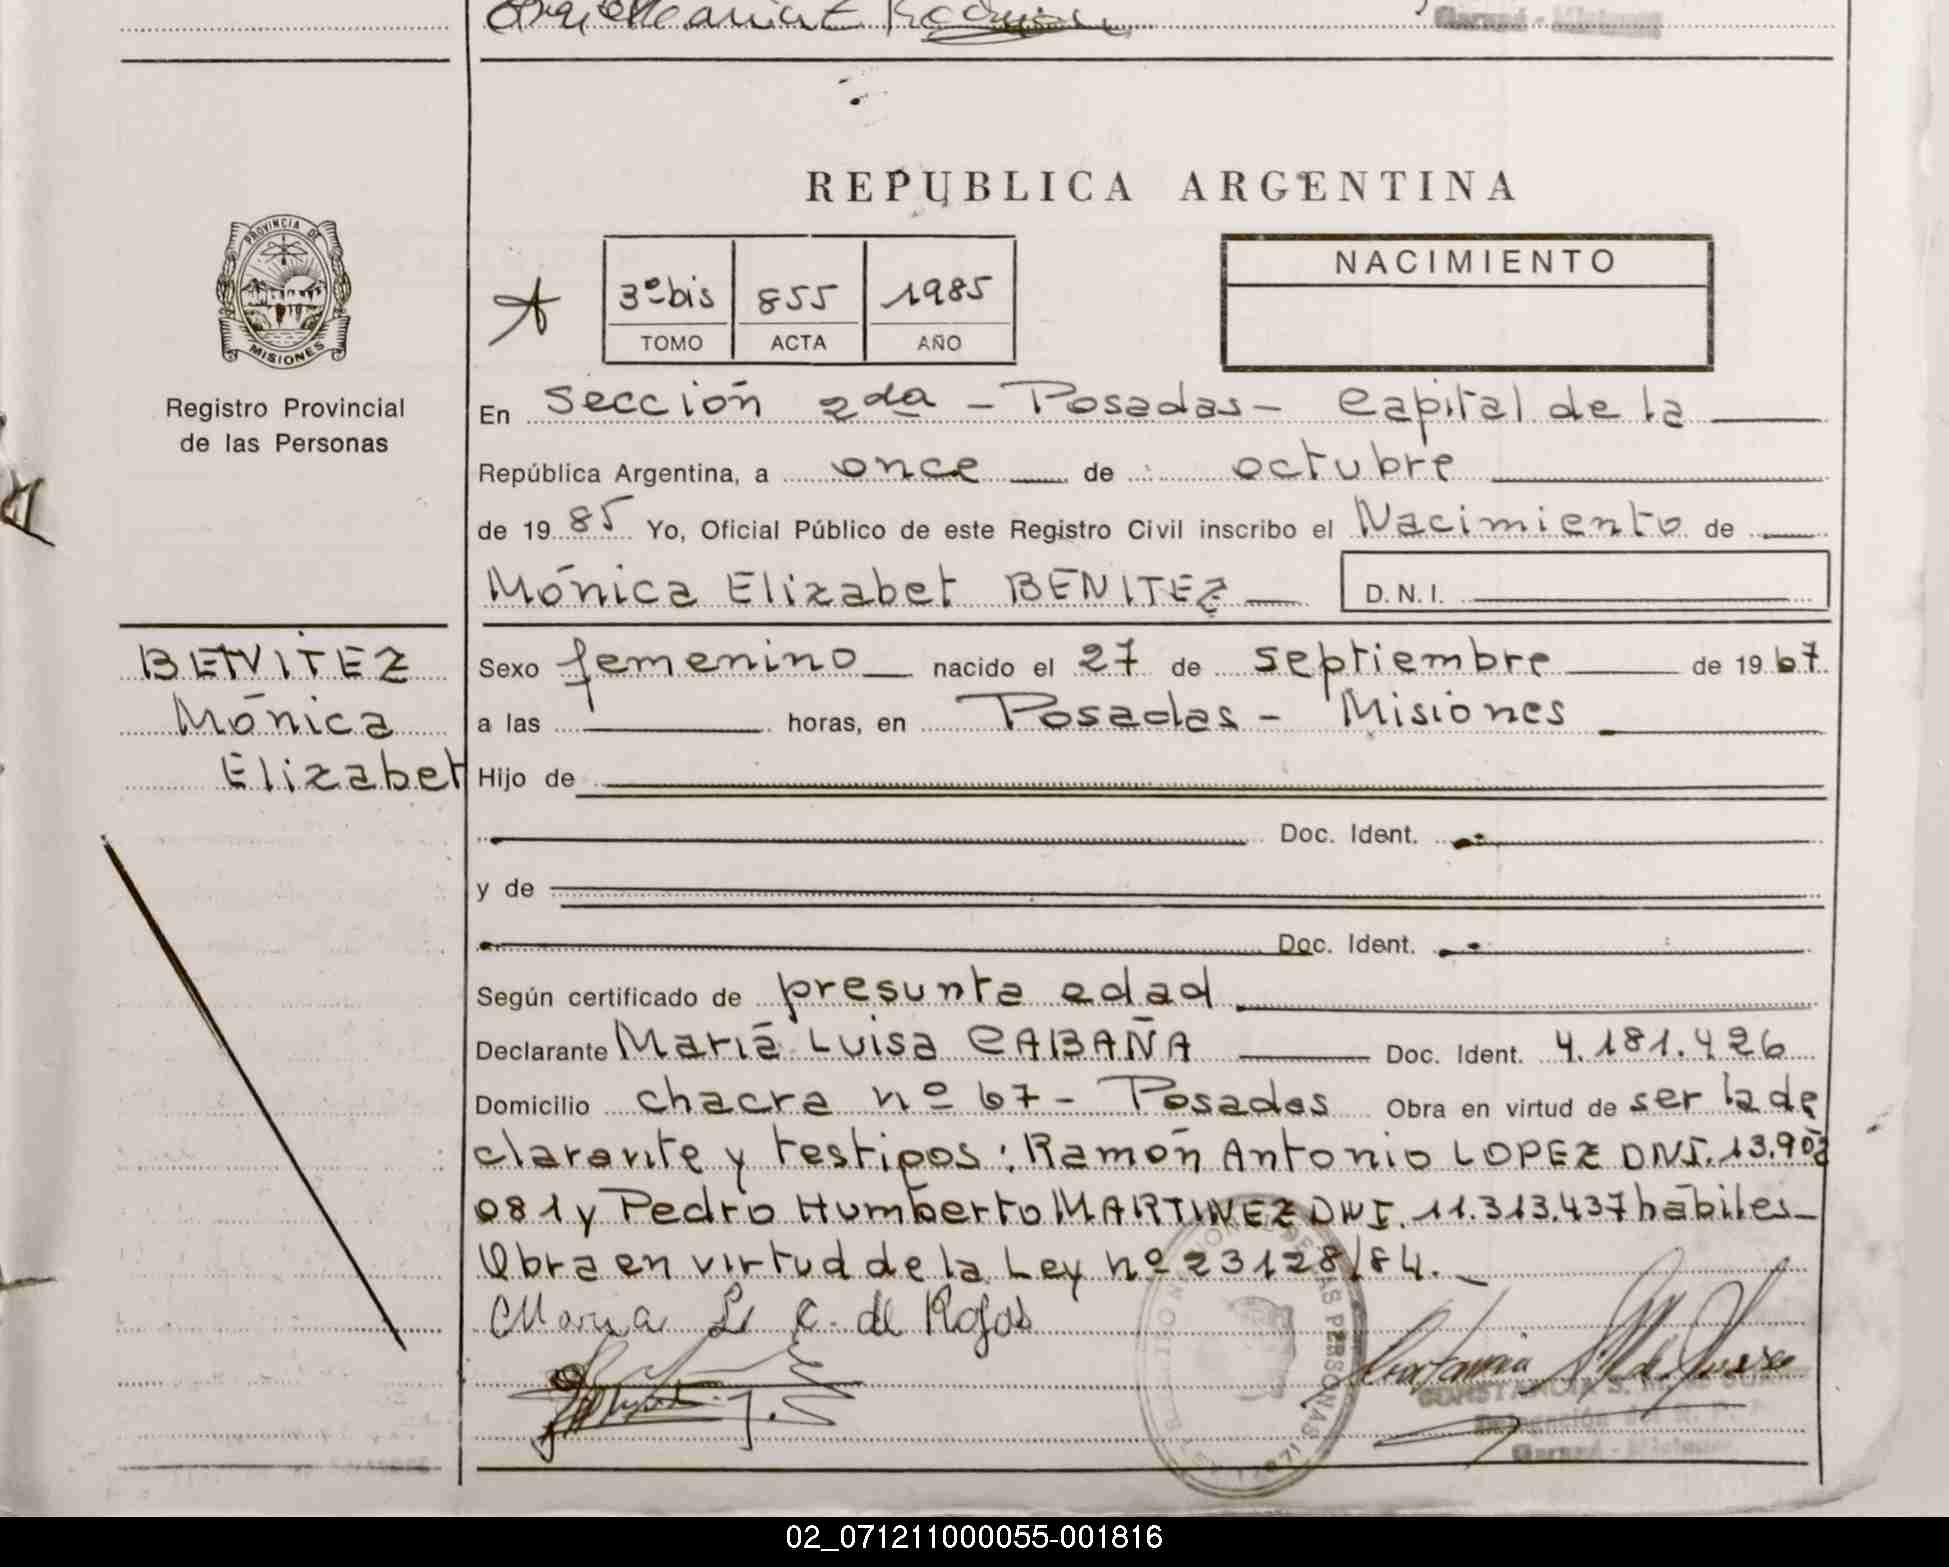 REPUBLICA ARGENTINA
PROVINCIA DE
MISIONES
Registro Provincial
de las Personas
3º bis 855 1985
TOMO ACTA AÑO
NACIMIENTO
En Sección 2da - Posadas - Capital de la
República Argentina, a once de octubre
de 1985 Yo, Oficial Público de este Registro Civil inscribo el Nacimiento de
Mónica Elizabet BENITEZ D.N.I.
BENITEZ
Mónica
Elizabet
Sexo femenino nacido el 27 de septiembre de 1967
a las horas, en Posadas - Misiones
Hijo de
Doc. Ident.
y de
Doc. Ident.
Según certificado de presunta edad
Declarante María Luisa CABAÑA Doc. Ident. 4.181.426
Domicilio chacra nº 67 - Posadas Obra en virtud de ser la de
clarante y testigos: Ramón Antonio LOPEZ DNI. 13.902
081 y Pedro Humberto MARTINEZ DNI. 11.313.437 hábiles_
Obra en virtud de la Ley nº 23128/84._
Maria L. C. de Rojas
CONSTANCIA S.
Delegación del R. P.
02_071211000055-001816